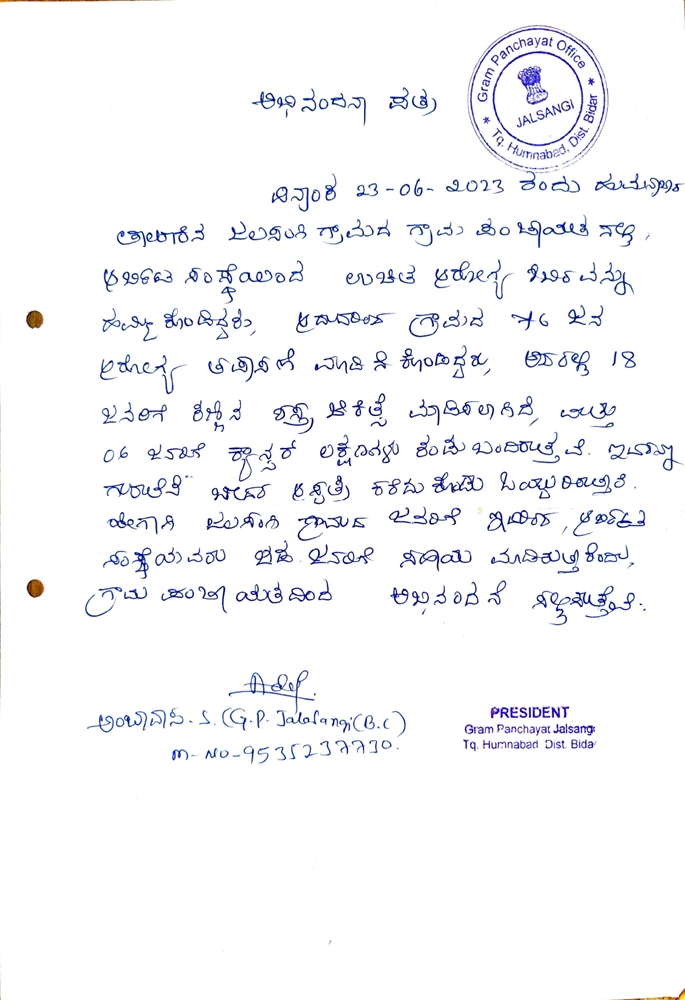 Gram Panchayat Office
JALSANGI
* Tq. Humnabad, Dist. Bidar *
ಅಭಿನಂದನಾ ಪತ್ರ
ದಿನಾಂಕ 23-06-2023 ರಂದು ಹುಮನಾಬಾದ
ತಾಲೂಕಿನ ಜಲಸಂಗಿ ಗ್ರಾಮದ ಗ್ರಾಮ ಪಂಚಾಯತ ನಲ್ಲಿ,
ಸಂಸ್ಥೆಯಿಂದ ಉಚಿತ ಆರೋಗ್ಯ ಶಿಬಿರವನ್ನು
ಹಮ್ಮಿಕೊಂಡಿದ್ದರು, ಗ್ರಾಮದ 76 ಜನ
ಆರೋಗ್ಯ ತಪಾಸಣೆ ಮಾಡಿಸಿಕೊಂಡಿದ್ದರು, ಅದರಲ್ಲಿ 18
ಜನರಿಗೆ ಕಣ್ಣಿನ ಶಸ್ತ್ರ ಚಿಕಿತ್ಸೆ ಮಾಡಿಸಲಾಗಿದೆ, ಮತ್ತು
06 ಜನರಿಗೆ ಕ್ಯಾನ್ಸರ್ ಲಕ್ಷಣಗಳು ಕಂಡು ಬಂದಿರುತ್ತವೆ.
ಬೀದರ ಆಸ್ಪತ್ರೆ ಕರೆದುಕೊಂಡು
ಹೀಗಾಗಿ ಜಲಸಂಗಿ ಗ್ರಾಮದ ಜನರಿಗೆ
ಸಂಸ್ಥೆಯವರು ಜನರಿಗೆ ಸಹಾಯ
ಗ್ರಾಮ ಪಂಚಾಯತದಿಂದ ಅಭಿನಂದನೆ ಸಲ್ಲಿಸುತ್ತೇವೆ.
ಅಂಬಾದಾಸ. S. (G.P. Jalasangi (B.C)
m-No-9535237730.
PRESIDENT
Gram Panchayat Jalsangi
Tq. Humnabad Dist. Bidar